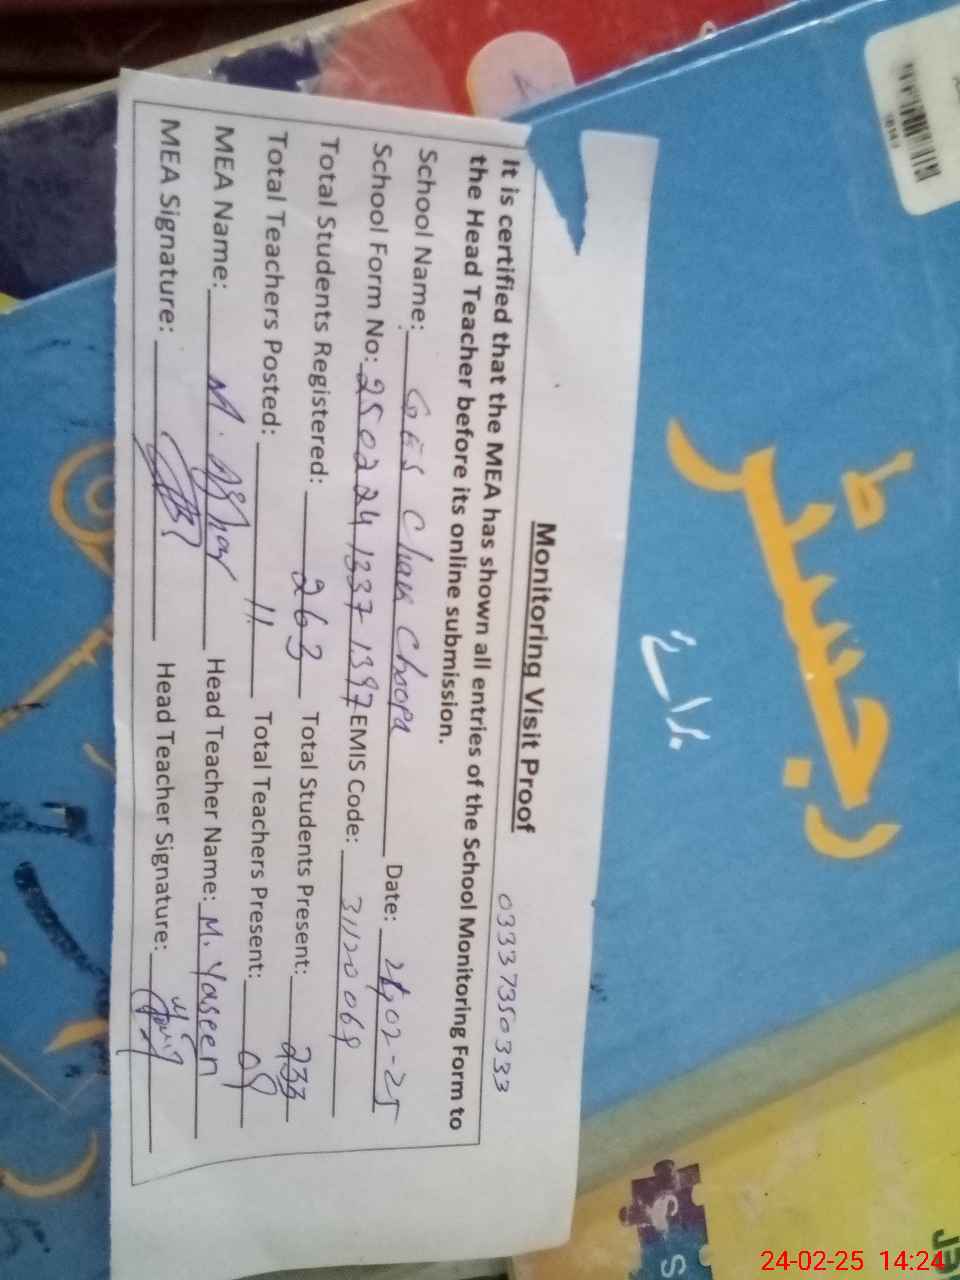 رجسٹر
برائے
Monitoring Visit Proof
03337350333
It is certified that the MEA has shown all entries of the School Monitoring Form to
the Head Teacher before its online submission.
School Name: GES Chak Choopa Date: 24-02-25
School Form No: 250224 1337-1397 EMIS Code: 31120069
Total Students Registered: 263 Total Students Present: 233
Total Teachers Posted: 11 Total Teachers Present: 09
MEA Name: M. Azhar Head Teacher Name: M. Yaseen
MEA Signature: Head Teacher Signature:
S
S
24-02-25 14:24